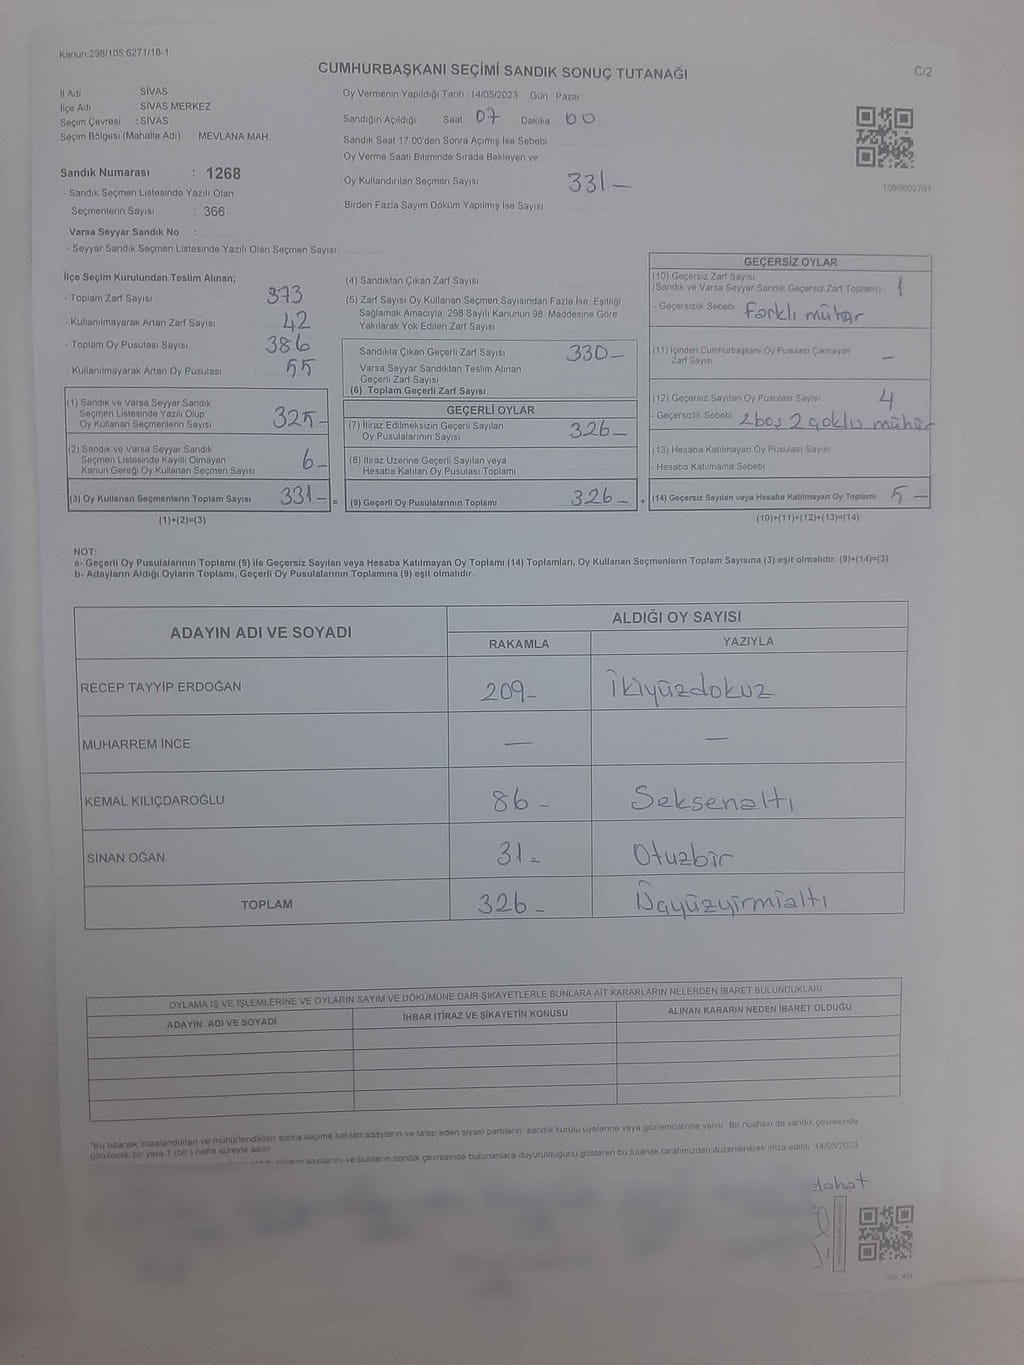 Kanun:298/105,6271/18-1
CUMHURBAŞKANI SEÇİMİ SANDIK SONUÇ TUTANAĞI
C/2
İl Adı : SİVAS
İlçe Adı : SİVAS MERKEZ
Seçim Çevresi : SİVAS
Seçim Bölgesi (Mahalle Adı) : MEVLANA MAH.
Sandık Numarası : 1268
- Sandık Seçmen Listesinde Yazılı Olan
Seçmenlerin Sayısı : 366
Varsa Seyyar Sandık No :
- Seyyar Sandık Seçmen Listesinde Yazılı Olan Seçmen Sayısı
Oy Vermenin Yapıldığı Tarih :14/05/2023 Gün : Pazar
Sandığın Açıldığı Saat 07 Dakika 00
Sandık Saat 17:00'den Sonra Açılmış İse Sebebi
Oy Verme Saati Bitiminde Sırada Bekleyen ve
Oy Kullandırılan Seçmen Sayısı 331-
Birden Fazla Sayım Döküm Yapılmış İse Sayısı
1099602781
İlçe Seçim Kurulundan Teslim Alınan;
- Toplam Zarf Sayısı 373
- Kullanılmayarak Artan Zarf Sayısı 42
- Toplam Oy Pusulası Sayısı 386
- Kullanılmayarak Artan Oy Pusulası 55
(1) Sandık ve Varsa Seyyar Sandık
Seçmen Listesinde Yazılı Olup
Oy Kullanan Seçmenlerin Sayısı 325-
(2) Sandık ve Varsa Seyyar Sandık
Seçmen Listesinde Kayıtlı Olmayan
Kanun Gereği Oy Kullanan Seçmen Sayısı 6-
(3) Oy Kullanan Seçmenlerin Toplam Sayısı 331- =
(1)+(2)=(3)
(4) Sandıktan Çıkan Zarf Sayısı
(5) Zarf Sayısı Oy Kullanan Seçmen Sayısından Fazla İse, Eşitliği
Sağlamak Amacıyla, 298 Sayılı Kanunun 98. Maddesine Göre
Yakılarak Yok Edilen Zarf Sayısı
Sandıkta Çıkan Geçerli Zarf Sayısı 330-
Varsa Seyyar Sandıktan Teslim Alınan
Geçerli Zarf Sayısı
(6) Toplam Geçerli Zarf Sayısı
GEÇERLİ OYLAR
(7) İtiraz Edilmeksizin Geçerli Sayılan
Oy Pusulalarının Sayısı 326-
(8) İtiraz Üzerine Geçerli Sayılan veya
Hesaba Katılan Oy Pusulası Toplamı
(9) Geçerli Oy Pusulalarının Toplamı 326- +
GEÇERSİZ OYLAR
(10) Geçersiz Zarf Sayısı
(Sandık ve Varsa Seyyar Sandık Geçersiz Zarf Toplamı) 1
- Geçersizlik Sebebi Farklı mühür
(11) İçinden Cumhurbaşkanı Oy Pusulası Çıkmayan
Zarf Sayısı -
(12) Geçersiz Sayılan Oy Pusulası Sayısı 4
- Geçersizlik Sebebi 2 boş 2 çoklu mühür
(13) Hesaba Katılmayan Oy Pusulası Sayısı
- Hesaba Katılmama Sebebi
(14) Geçersiz Sayılan veya Hesaba Katılmayan Oy Toplamı 5-
(10)+(11)+(12)+(13)=(14)
NOT:
a- Geçerli Oy Pusulalarının Toplamı (9) ile Geçersiz Sayılan veya Hesaba Katılmayan Oy Toplamı (14) Toplamları, Oy Kullanan Seçmenlerin Toplam Sayısına (3) eşit olmalıdır. (9)+(14)=(3)
b- Adayların Aldığı Oyların Toplamı, Geçerli Oy Pusulalarının Toplamına (9) eşit olmalıdır.
ADAYIN ADI VE SOYADI
ALDIĞI OY SAYISI
RAKAMLA YAZIYLA
RECEP TAYYİP ERDOĞAN 209- İkiyüzdokuz
MUHARREM İNCE — —
KEMAL KILIÇDAROĞLU 86- Seksenaltı
SİNAN OĞAN 31- Otuzbir
TOPLAM 326- Üçyüzyirmialtı
OYLAMA İŞ VE İŞLEMLERİNE VE OYLARIN SAYIM VE DÖKÜMÜNE DAİR ŞİKAYETLERLE BUNLARA AİT KARARLARIN NELERDEN İBARET BULUNDUKLARI
ADAYIN ADI VE SOYADI İHBAR İTİRAZ VE ŞİKAYETİN KONUSU ALINAN KARARIN NEDEN İBARET OLDUĞU
"Bu tutanak imzalandıktan ve mühürlendikten sonra seçime katılan adayların ve talep eden siyasi partilerin sandık kurulu üyelerine veya gözlemcilerine verilir. Bir nushası da sandık çevresinde
görülecek bir yere 1 (bir ) hafta süreyle asılır.
oyların sayılarını ve bunların sandık çevresinde bulunanlara duyurulduğunu gösteren bu tutanak tarafımızdan düzenlenerek imza edildi. 14/05/2023